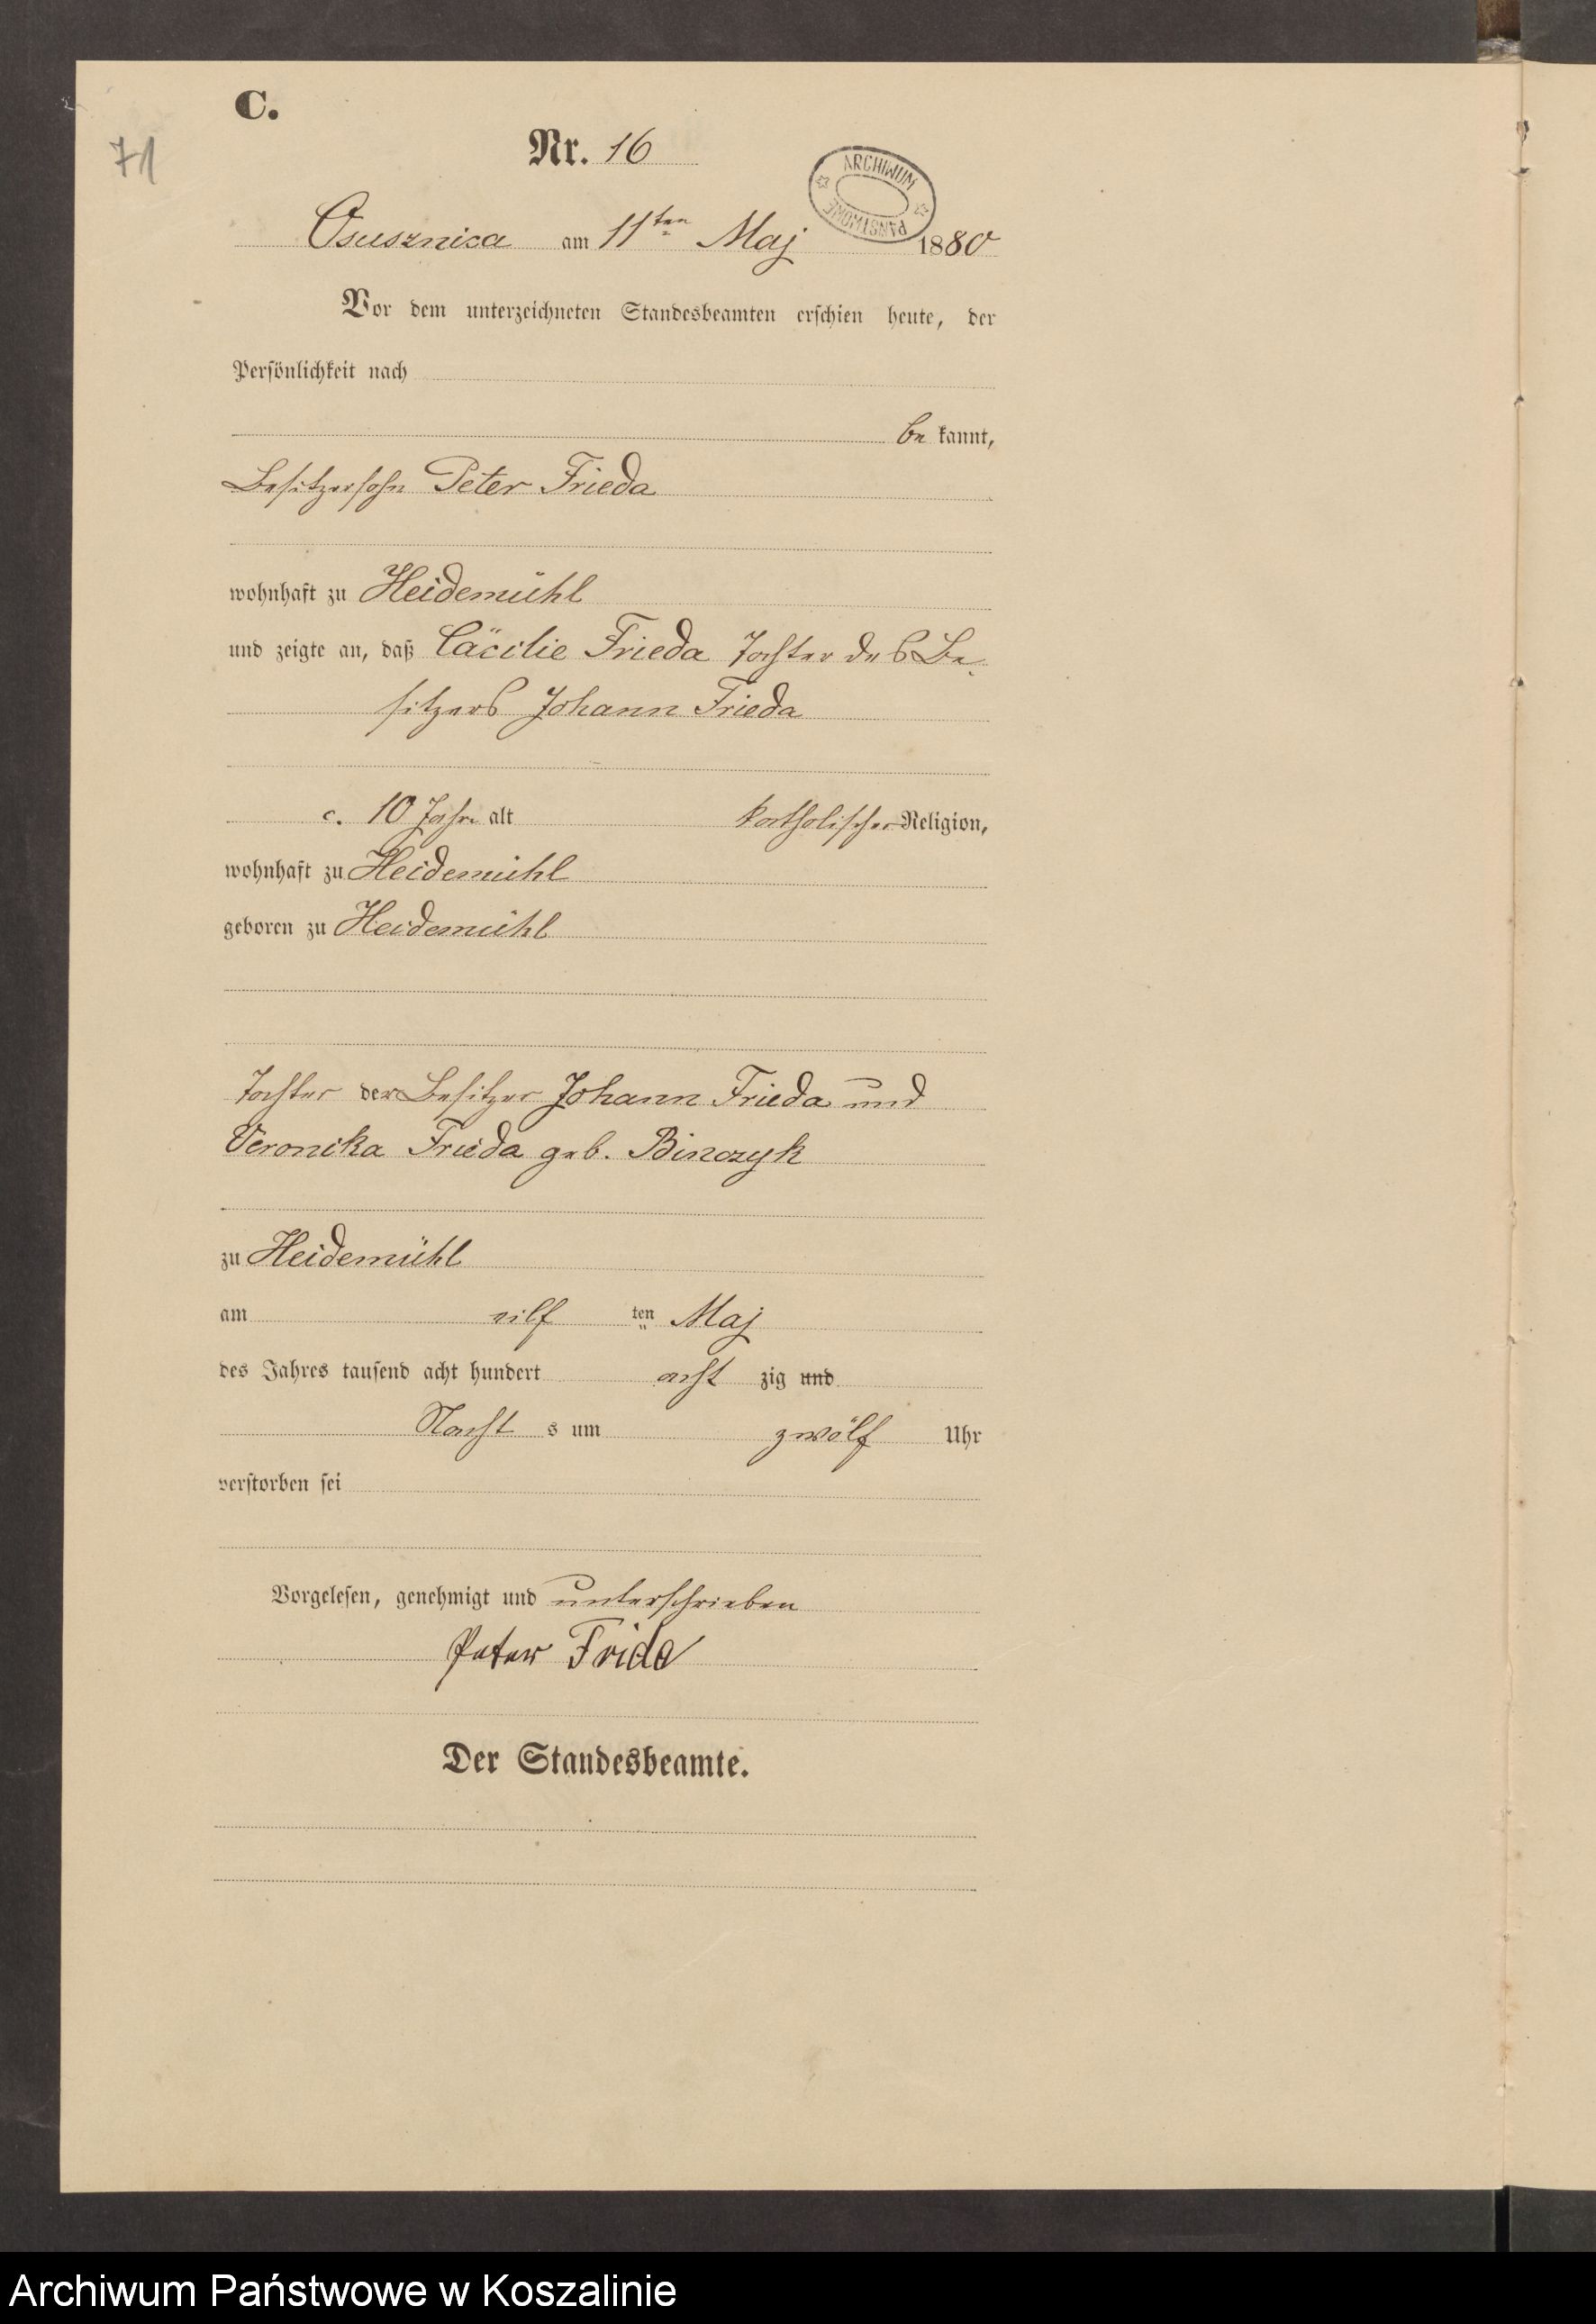 C.
71
Nr. 16
ARCHIWUM PAŃSTWOWE
Osusznica am 11ten Maj 1880
Vor dem unterzeichneten Standesbeamten erschien heute, der
Persönlichkeit nach
be kannt,
Besitzersohn Peter Frieda
wohnhaft zu Heidemühl
und zeigte an, daß Cäcilie Frieda Tochter des Be-
sitzers Johann Frieda
c. 10 Jahre alt katholischer Religion,
wohnhaft zu Heidemühl
geboren zu Heidemühl
Tochter der Besitzer Johann Frieda und
Veronika Frieda geb. Binczyk
zu Heidemühl
am eilf ten Maj
des Jahres tausend acht hundert acht zig und
Nacht s um zwölf Uhr
verstorben sei
Vorgelesen, genehmigt und unterschrieben
Peter Frida
Der Standesbeamte.
Archiwum Państwowe w Koszalinie